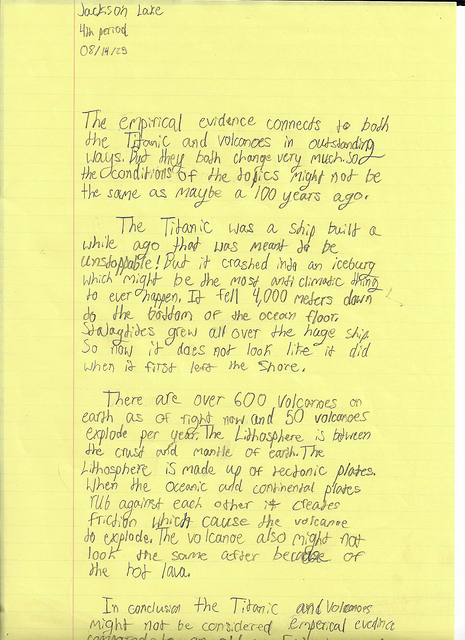 Jackson Lake
4th period
08/14/25
The empirical evidence connects to both
the Titanic and volcanoes in outstanding
ways. But they both change very much. So
the conditions of the topics might not be
the same as maybe a 100 years ago.
The Titanic was a ship built a
while ago that was meant to be
unstoppable! But it crashed into an iceburg
which might be the most anti climatic thing
to ever happen. It fell 4,000 meters down
to the bottom of the ocean floor.
Stalagtites grew all over the huge ship.
So now it does not look like it did
when it first left the shore.
There are over 600 volcanoes on
earth as of right now and 50 volcanoes
explode per year. The Lithosphere is between
the crust and mantle of earth. The
Lithosphere is made up of tectonic plates.
When the oceanic and continental plates
rub against each other it creates
friction which cause the volcanoe
to explode. The volcanoe also might not
look the same after because of
the hot lava.
In conclusion the Titanic and Volcanoes
might not be considered emperical evidence